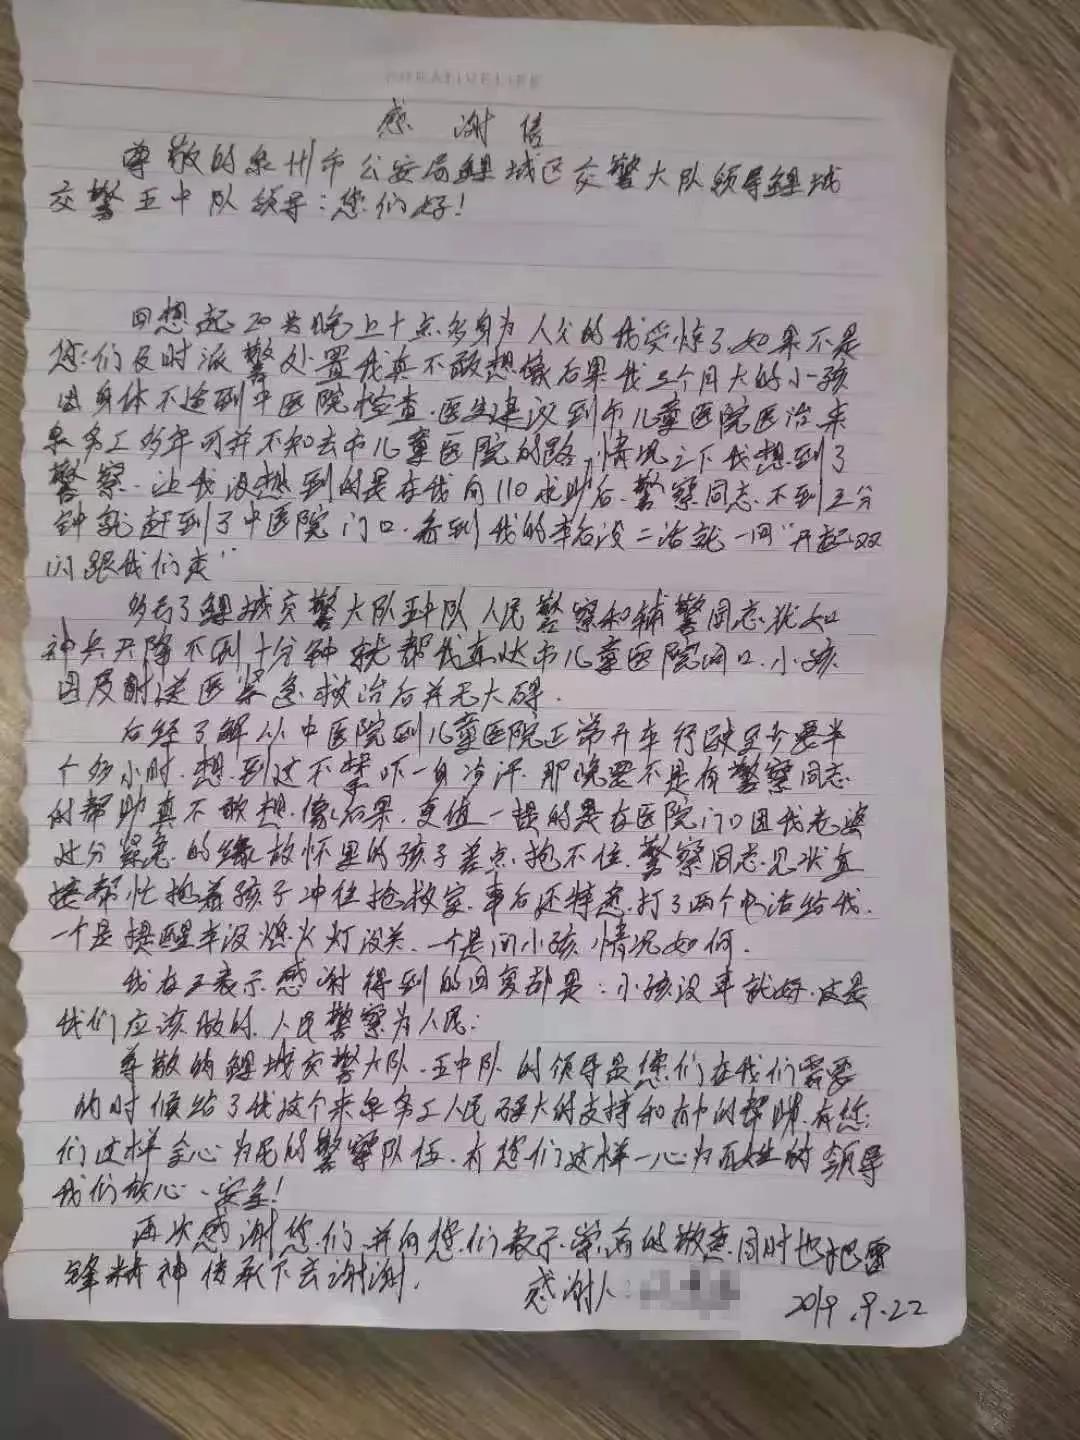 CREATIVELIFE
感谢信
尊敬的泉州市公安局鲤城区交警大队领导鲤城
交警五中队领导:您们好!
回想起20号晚上十点多身为人父的我受惊了.如果不是
您们及时派警处置我真不敢想像后果我三个月大的小孩
因身体不适到中医院检查.医生建议到市儿童医院医治来
泉务工多年可并不知去市儿童医院的路,情况之下我想到了
警察.让我没想到的是在我向110求助后.警察同志不到五分
钟就赶到了中医院门口.看到我的车后没二话就一同"开起双
闪跟我们走"
多亏了鲤城交警大队五中队人民警察和辅警同志犹如
神兵天降不到十分钟就帮我车送市儿童医院门口.小孩
因及时送医紧急救治后并无大碍.
后经了解从中医院到儿童医院正常开车行驶至少要半
个多小时.想到这不禁吓一身冷汗.那晚要不是有警察同志
的帮助真不敢想像后果.更值一提的是在医院门口因我老婆
过分紧急的缘故怀里的孩子差点抱不住.警察同志见状直
接帮忙抱着孩子冲往抢救室.事后还特意打了两个电话给我.
一个是提醒车没熄火灯没关.一个是问小孩情况如何.
我在三表示感谢得到的回复却是:小孩没事就好.这是
我们应该做的.人民警察为人民:
尊敬的鲤城交警大队.五中队的领导是您们在我们需要
的时候给了我这个来泉务工人民强大的支持和有力的帮助.有您
们这样全心为民的警察队伍.有您们这样一心为百姓的领导
我们放心、安全!
再次感谢您们.并向您们表示崇高的敬意同时也把雷
锋精神传承下去谢谢.
感谢人:
2019.9.22